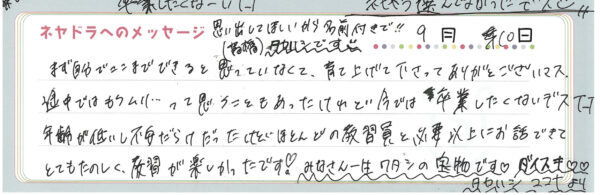 卒業したくなーい
ネヤドラへのメッセージ 思い出してほしいから名前付きで!!
9月 10日
まず自分でここまでできると思っていなくて、育て上げて下さってありがとうございマス。
途中ではもうムリ…って思うこともあったけれど今では卒業したくないデス
年齢が低いし不安だらけだったけどほとんどの教習員と必要以上にお話できて
とてもたのしく、教習が楽しかったです♡ みなさん一生ワタシの宝物です♡ ダイスキ♡